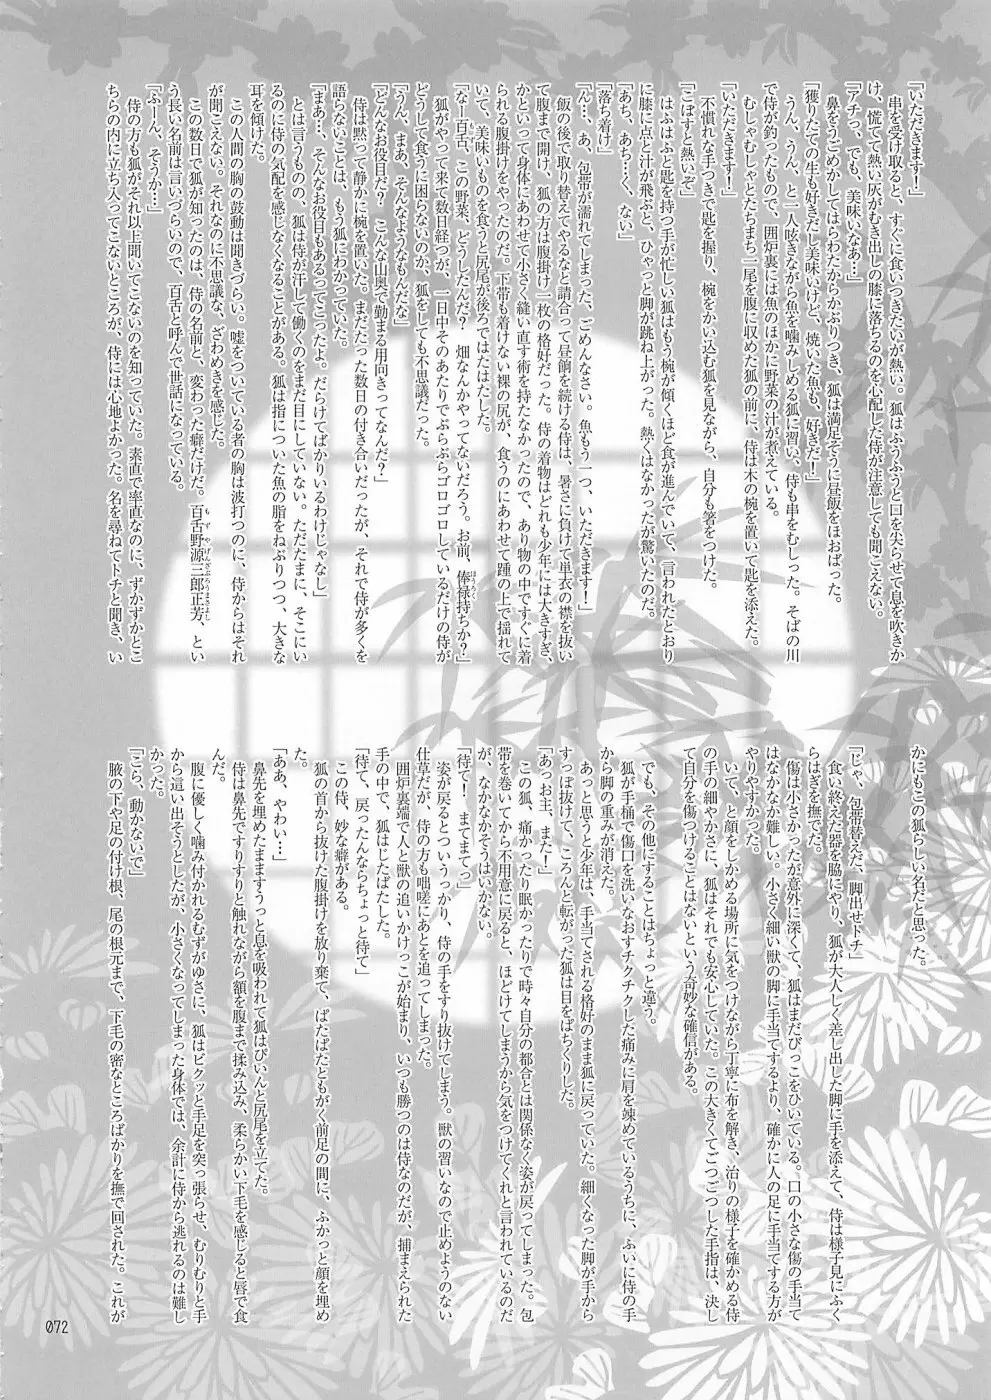 「いただきます！」
串を受け取ると、すぐに食いつきたいが熱い。狐はふうふうと口を尖らせて息を吹きか
け、慌てて熱い灰がむき出しの膝に落ちるのを心配した侍が注意しても聞こえない。
「アチっ、でも、美味いなあ…」
鼻をうごめかしてはらわたからかぶりつき、狐は満足そうに昼飯をほおばった。
「獲りたての生も好きだし美味いけど、焼いた魚も、好きだ！」
うん、うん、と一人呟きながら魚を噛みしめる狐に習い、侍も串をむしった。そばの川
で侍が釣ったもので、囲炉裏には魚のほかに野菜の汁が煮えている。
むしゃむしゃとたちまち二尾を腹に収めた狐の前に、侍は木の椀を置いて匙を添えた。
「いただきます！」
不慣れな手つきで匙を握り、椀をかい込む狐を見ながら、自分も箸をつけた。
「こぼすと熱いぞ」
はふはふと匙を持つ手が忙しい狐はもう椀が傾くほど食が進んでいて、言われたとおり
に膝に点と汁が飛ぶと、ひゃっと脚が跳ね上がった。熱くはなかったが驚いたのだ。
「あち、あち…、く、ない」
「落ち着け」
「ん…、あ、包帯が濡れてしまった、ごめんなさい。魚もう一つ、いただきます！」
飯の後で取り替えてやるなと請合って昼餉を続ける侍は、暑さに負けて単衣の襟を抜い
て腹まで開け、狐の方は腹掛け一枚の格好だった。侍の着物はどれも少年には大きすぎ、
かといって身体にあわせて小さく縫い直す術を持たなかったので、あり物の中ですぐに着
られる腹掛けをやったのだ。下帯も着けない裸の尻が、食うのにあわせて踵の上で揺れて
いて、美味いものを食うと尻尾が後ろではたはたした。
「なー百舌、この野菜、どうしたんだ？　畑なんかやってないだろう。お前、俸禄持ちか？」
狐がやって来て数日経つが、一日中そのあたりでぶらぶらゴロゴロしているだけの侍が
どうして食うに困らないのか、狐をしても不思議だった。
「うん、まあ、そんなようなもんだな」
「どんなお役目だ？　こんな山奥で勤まる用向きってなんだ？」
侍は黙って静かに椀を置いた。まだたった数日の付き合いだったが、それで侍が多くを
語らないことは、もう狐にわかっていた。
「まあ…、そんなお役目もあるってこったよ。だらけてばかりいるわけじゃなし」
とは言うものの、狐は侍が汗して働くのをまだ目にしていない。ただたまに、そこにい
るのに侍の気配を感じなくなることがある。狐は指についた魚の脂をねぶりつつ、大きな
耳を傾けた。
この人間の胸の鼓動は聞きづらい。嘘をついている者の胸は波打つのに、侍からはそれ
が聞こえない。それなのに不思議な、ざわめきを感じた。
この数日で狐が知ったのは、侍の名前と、変わった癖だけだ。百舌野源三郎正芳、とい
う長い名前は言いづらいので、百舌と呼んで世話になっている。
「ふーん、そうか…」
侍の方も狐がそれ以上聞いてこないのを知っていた。素直で率直なのに、ずかずかとこ
ちらの内に立ち入ってこないところが、侍には心地よかった。名を尋ねてトチと聞き、い
かにもこの狐らしい名だと思った。
「じゃ、包帯替えだ、脚出せトチ」
食い終えた器を脇にやり、狐が大人しく差し出した脚に手を添えて、侍は様子見にふく
らはぎを撫でた。
傷は小さかったが意外に深くて、狐はまだびっこをひいている。口の小さな傷の手当て
はなかなか難しい。小さく細い獣の脚に手当てするより、確かに人の足に手当てする方が
やりやすかった。
いて、と顔をしかめる場所に気をつけながら丁寧に布を解き、治りの様子を確かめる侍
の手の細やかさに、狐はそれでも安心していた。この大きくてごつごつした手指は、決し
て自分を傷つけることはないという奇妙な確信がある。
でも、その他にすることはちょっと違う。
狐が手桶で傷口を洗いなおすチクチクした痛みに肩を竦めているうちに、ふいに侍の手
から脚の重みが消えた。
あっと思うと少年は、手当てされる格好のまま狐に戻っていた。細くなった脚が手から
すっぽ抜けて、ころんと転がった狐は目をぱちくりした。
「あっお主、また！」
この狐、痛かったり眠かったりで時々自分の都合とは関係なく姿が戻ってしまった。包
帯を巻いてから不用意に戻ると、ほどけてしまうから気をつけてくれと言われているのだ
が、なかなかそうはいかない。
「待て！　まてまてっ」
姿が戻るとついうっかり、侍の手をすり抜けてしまう。獣の習いなので止めようのない
仕草だが、侍の方も咄嗟にあとを追ってしまった。
囲炉裏端で人と獣の追いかけっこが始まり、いつも勝つのは侍なのだが、捕まえられた
手の中で、狐はじたばたした。
「待て、戻ったんならちょっと待て」
この侍、妙な癖がある。
狐の首から抜けた腹掛けを放り棄て、ばたばたともがく前足の間に、ふかっと顔を埋め
た。
「ああ、やわい…」
鼻先を埋めたまますうっと息を吸われて狐はぴいんと尻尾を立てた。
侍は鼻先ですりすりと触れながら額を腹まで揉み込み、柔らかい下毛を感じると唇で食
んだ。
腹に優しく噛み付かれるむずがゆさに、狐はビクッと手足を突っ張らせ、むりむりと手
から這い出そうとしたが、小さくなってしまった身体では、余計に侍から逃れるのは難し
かった。
「こら、動かないで」
腋の下や足の付け根、尾の根元まで、下毛の密なところばかりを撫で回された。これが
072